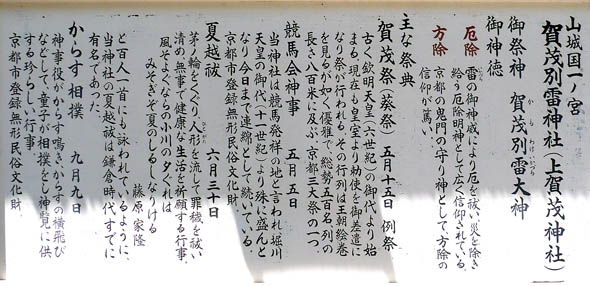 山城国一ノ宮
賀茂別雷神社(上賀茂神社)
御祭神 賀茂別雷大神
かも わけいかづち
御神徳
厄除 雷の御神威により厄を祓い災を除き
給う厄除明神として広く信仰されている。
方除 京都の鬼門の守り神として、方除の
信仰が篤い。
主な祭典
賀茂祭(葵祭) 五月十五日 例祭
古く欽明天皇(六世紀)の御代より始
まる。現在も皇室より勅使を御差遣に
なり祭が行われる。その行列は王朝絵巻
を見るが如く優雅で、総勢五百名、列の
長さ八百米に及ぶ。京都三大祭の一つ。
競馬会神事 五月五日
当神社は競馬発祥の地と言われ、堀川
天皇の御代(十一世紀)より殊に盛んと
なり今日まで連綿として続いている。
京都市登録無形民俗文化財
夏越祓 六月三十日
茅ノ輪をくぐり人形を流して罪穢を祓い
清め無事で健康な生活を祈願する行事。
風そよぐならの小川の夕ぐれは
みそぎぞ夏のしるしなりける
藤原家隆
と百人一首にも詠われているように、
当神社の夏越祓は鎌倉時代、すでに
有名であった。
からす相撲 九月九日
神事役がからす鳴き、からすの横飛び
などをして、童子が相撲をし神覧に供
する珍らしい行事
京都市登録無形民俗文化財